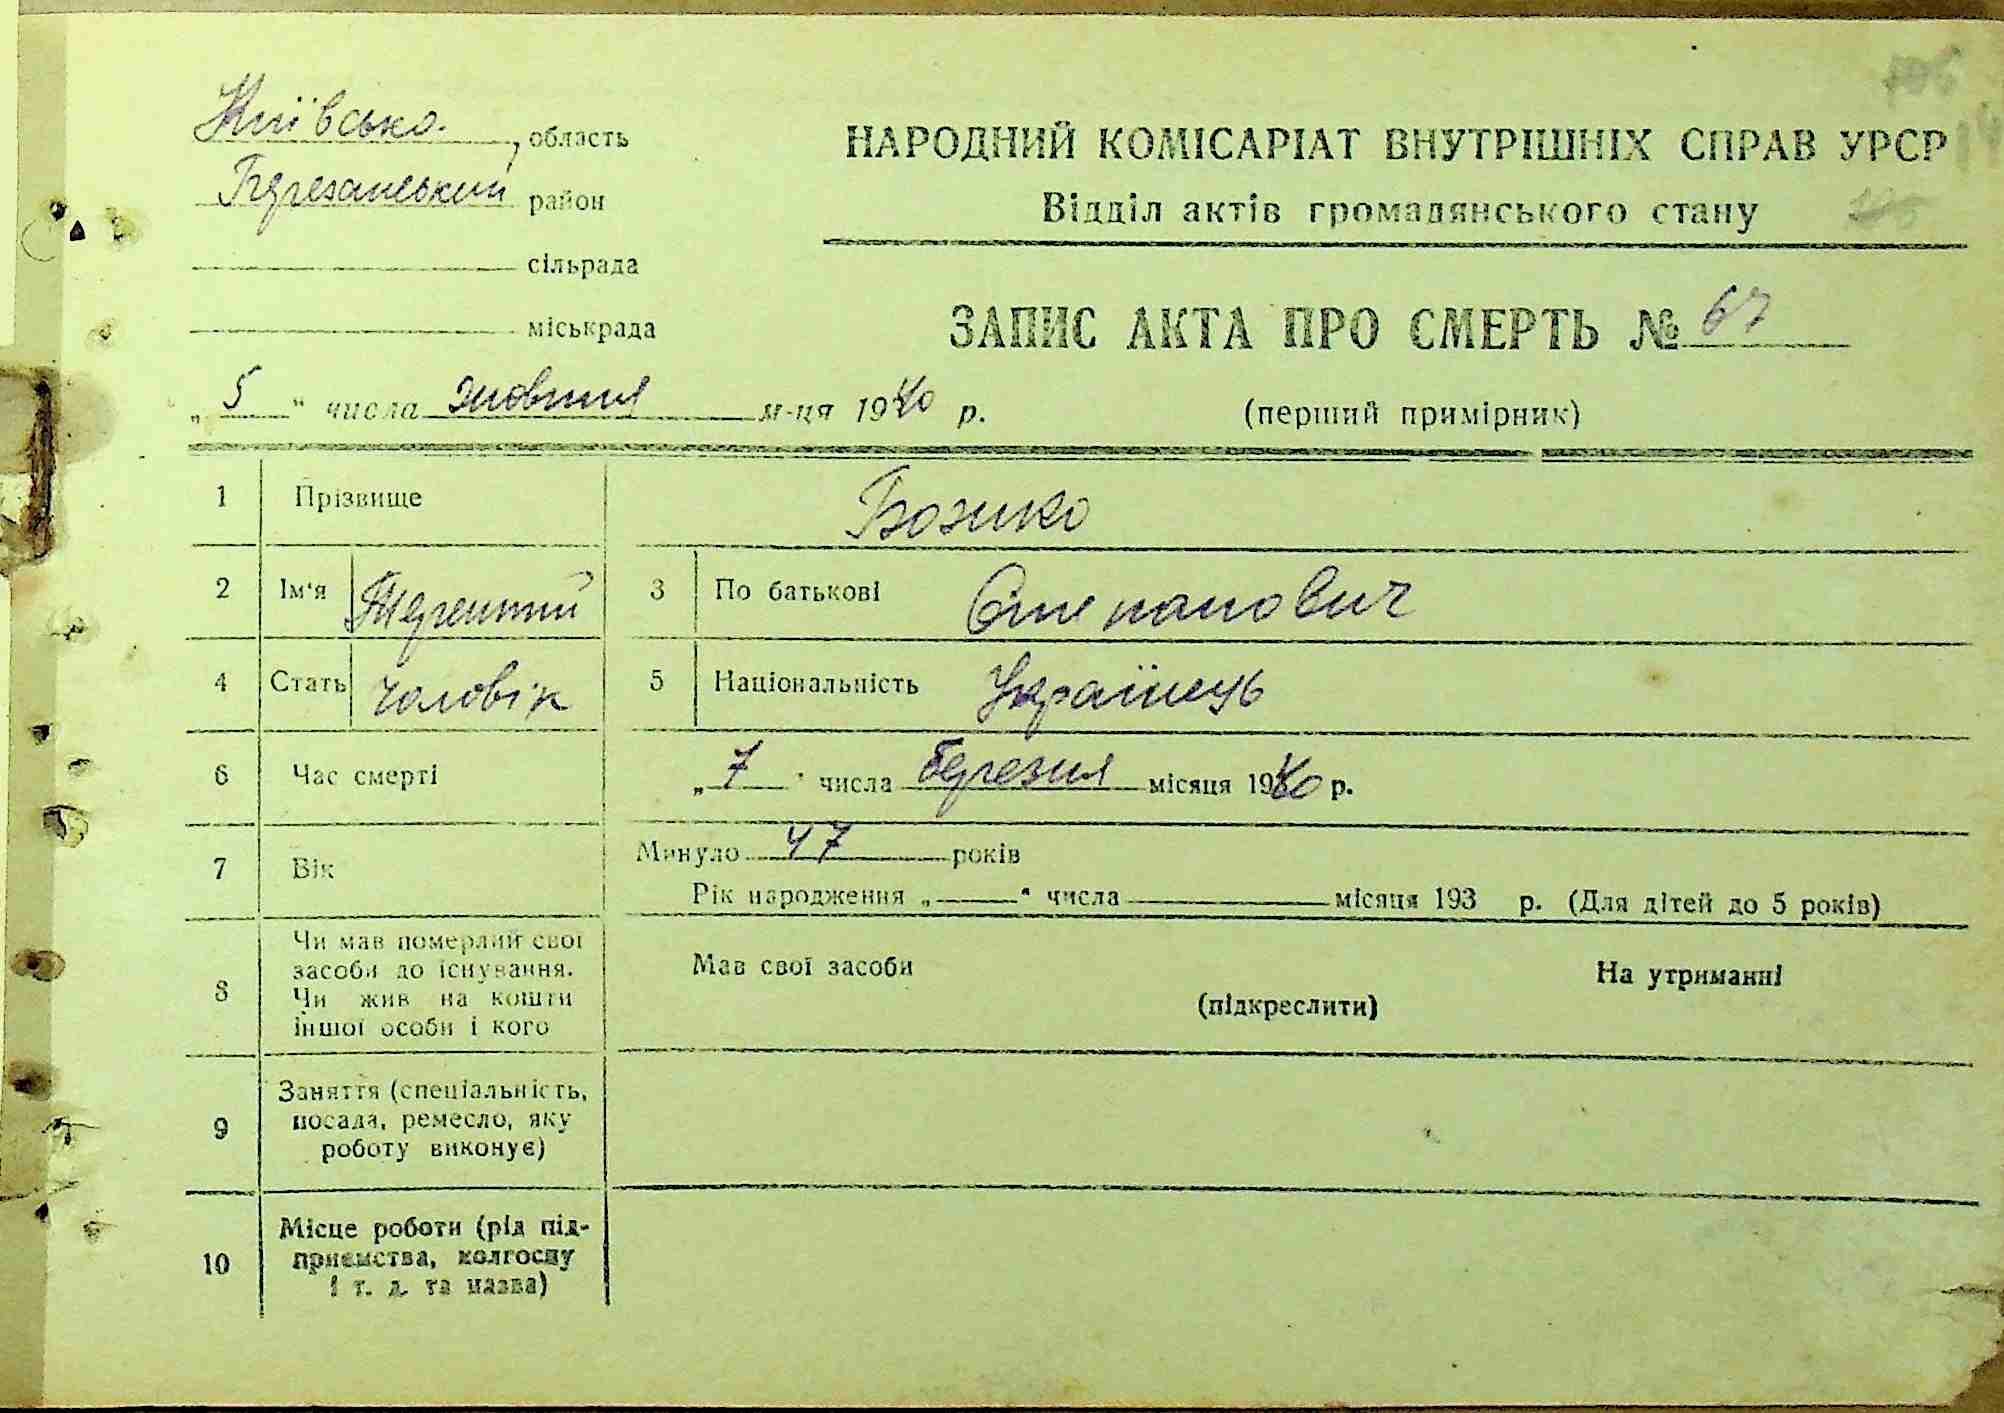 Київська область
Березанський район
сільрада
міськрада
НАРОДНИЙ КОМІСАРІАТ ВНУТРІШНІХ СПРАВ УРСР
Відділ актів громадянського стану
ЗАПИС АКТА ПРО СМЕРТЬ № 67
„ 5 “ числа жовтня м-ця 1940 р.
(перший примірник)
1 Прізвище Божко
2 Ім'я Терентій 3 По батькові Степанович
4 Стать чоловік 5 Національність Українець
6 Час смерті „ 7 “ числа березня місяця 1940 р.
7 Вік Минуло 47 років
Рік народження „ “ числа місяця 193 р. (Для дітей до 5 років)
8 Чи мав померлий свої
засоби до існування.
Чи жив на кошти
іншої особи і кого
Мав свої засоби На утриманні
(підкреслити)
9 Заняття (спеціальність,
посада, ремесло, яку
роботу виконує)
10 Місце роботи (рід під-
приємства, колгоспу
і т. д. та назва)